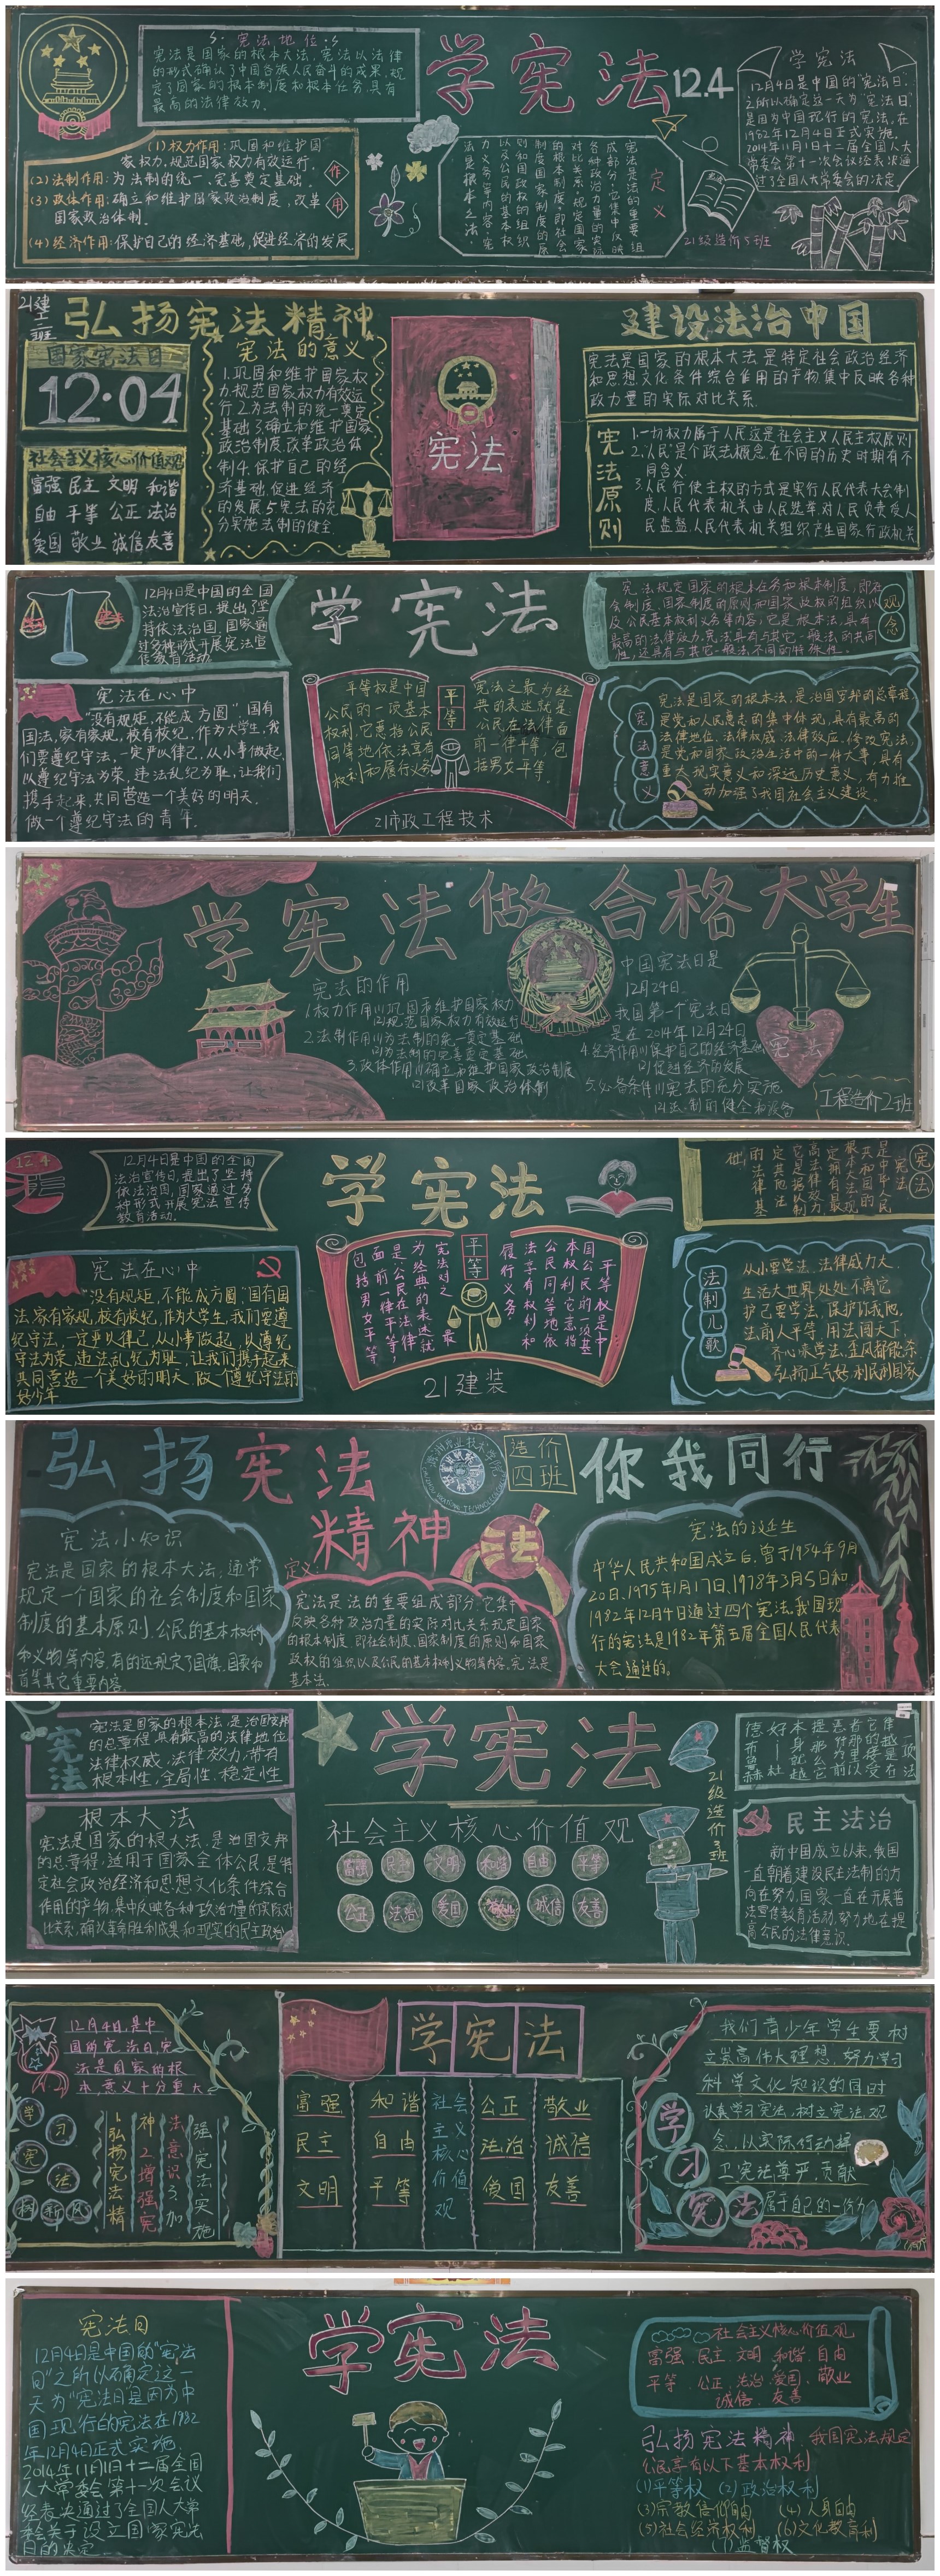 宪法地位
宪法是国家的根本大法,宪法以法律
的形式确认了中国各族人民奋斗的成果,规
定了国家的根本制度和根本任务,具有
最高的法律效力。
(1)权力作用:巩固和维护国
家权力,规范国家权力有效运行。
(2)法制作用:为法制的统一、完善奠定基础。
(3)政体作用:确立和维护国家政治制度,改革
国家政治体制。
(4)经济作用:保护自己的经济基础,促进经济的发展
作
用
学宪法12.4
定义
宪法是法的重要组
成部分,它集中反映
各种政治力量的实际
对比关系,规定国家
的根本制度,即社会
制度国家制度的原
则和国家政权的组织
以及公民的基本权
力义务等内容,宪
法是根本之法。
21级造价5班
学宪法
12月4日是中国的“宪法日”:
之所以确定这一天为“宪法日”
是因为中国现行的宪法,在
1982年12月4日正式实施。
2014年11月1日十二届全国人大
常委会第十一次会议经表决通
过了全国人大常委会的决定。
21建工二班
弘扬宪法精神
国家宪法日
12·04
社会主义核心价值观
富强 民主 文明 和谐
自由 平等 公正 法治
爱国 敬业 诚信 友善
宪法的意义
1.巩固和维护国家权
力规范国家权力有效运
行 2.为法制的统一奠定
基础 3.确立和维护国家
政治制度,改革政治体
制4.保护自己的经
济基础,促进经济
的发展 5.宪法的充
分实施法制的健全
宪法
建设法治中国
宪法是国家的根本大法是特定社会政治经济
和思想文化条件综合作用的产物集中反映各种
政力量的实际对比关系.
宪法原则
1.一切权力属于人民这是社会主义人民主权原则
2.人民是个政法概念.在不同的历史时期有不
同含义.
3.人民行使主权的方式是实行人民代表大会制
度,人民代表机关由人民选举对人民负责受人
民监督.人民代表机关组织产生国家行政机关
12月4日是中国的全国
法治宣传日,提出了坚
持依法治国,国家通
过多种形式开展宪法宣
传教育活动
宪法在心中
“没有规矩,不能成方圆”国有
国法,家有家规,校有校纪,作为大学生,我
们要遵纪守法,一定严以律己,从小事做起,
以遵纪守法为荣,违法乱纪为耻,让我们
携手起来,共同营造一个美好的明天。
做一个遵纪守法的青年。
学宪法
平等
平等权是中国
公民的一项基本
权利,它意指公民
同等地依法享有
权利和履行义务
宪法之最为经
典的表述就是
公民在法律面
前一律平等,包
括男女平等。
21市政工程技术
宪法规定国家的根本任务和根本制度,即社
会制度、国家制度的原则和国家政权的组织以
及公民基本权利义务等内容;它是根本法,具有
最高的法律效力,宪法具有与其它一般法的共同
性,还具有与其它一般法不同的特殊性。
观念
宪法意义
宪法是国家的根本法,是治国安邦的总章程,
是党和人民意志的集中体现,具有最高的
法律地位、法律权威、法律效应。修改宪法,
是党和国家政治生活中的一件大事,具有
重大现实意义和深远历史意义,有力推
动加强了我国社会主义建设。
学宪法做合格大学生
宪法的作用
1.权力作用(1)巩固和维护国家权力
(2)规范国家权力有效运行
2.法制作用(1)为法制的统一奠定基础
(2)为法制的完善奠定基础
3.政体作用(1)确立和维护国家政治制度
(2)改革国家政治体制
中国宪法日是
12月24日。
我国第一个宪法日
是在2014年12月24日
4.经济作用(1)保护自己的经济基础
(2)促进经济的发展
5.必备条件(1)宪法的充分实施
宪法
工程造价2班
12 4
12月4日是中国的全国
法治宣传日,提出了坚持
依法治国,国家通过多
种形式开展宪法宣传
教育活动.
宪法在心中
“没有规矩,不能成方圆”国有国
法,家有家规,校有校纪,作为大学生,我们要遵
纪守法,一定严以律己,从小事做起,以遵纪
守法为荣,违法乱纪为耻,让我们携手起来
共同营造一个美好的明天,做一个遵纪守法的
好少年
学宪法
平等
平等权是中
国公民的一项基
本权利,它意指
公民同等地依
法享有权利和
履行义务.
宪法对之最
为经典的表述就
是:公民在法律
面前一律平等,
包括男女平等
21建装
宪法
法制儿歌
从小要学法,法律威力大,
生活大世界,处处不离它,
护己要学法,保护你我他,
法前人平等,用法闯天下,
齐心咏学法,歪风都能杀
弘扬正气好,利民利国家
弘扬宪法精神
造价四班
你我同行
宪法小知识
宪法是国家的根本大法,通常
规定一个国家的社会制度和国家
制度的基本原则,公民的基本权利
和义物等内容,有的还规定了国旗,国歌和
首等其它重要内容.
定义:
宪法是法的重要组成部分.它集中
反映各种政治力量的实际对比关系规定国家
的根本制度,即社会制度、国家制度的原则和国家
政权的组织以及公民的基本权利义物等内容,宪法是
基本法.
法
宪法的诞生
中华人民共和国成立后,曾于1954年9月
20日、1975年1月17日、1978年3月5日和
1982年12月4日通过四个宪法,我国现
行的宪法是1982年第五届全国人民代表
大会通过的。
宪法
宪法是国家的根本法,是治国安邦
的总章程,具有最高的法律地位
法律权威,法律效力,带有
根本性,全局性,稳定性
根本大法
宪法是国家的根大法,是治国安邦
的总章程,适用于国家全体公民,是特
定社会政治经济和思想文化条件综合
作用的产物,集中反映各种政治力量的实际对
比关系,确认革命胜利成果和现实的民主政治
学宪法
社会主义核心价值观
富强 民主 文明 和谐 自由 平等
公正 法治 爱国 敬业 诚信 友善
21级造价3班
民主法治
新中国成立以来,我国
一直朝着建设民主法制的方
向在努力,国家一直在开展普
法宣传教育活动,努力地在提
高公民的法律意识.
12月4日,是中
国的宪法日,宪
法是国家的根
本,意义十分重大
学习
宪法
树新风
1.弘扬宪法精
神2.增强宪
法意识3.加
强宪法实施
学宪法
富强 和谐 公正 敬业
民主 自由 法治 诚信
文明 平等 爱国 友善
社会主义核心价值观
我们青少年学生要树
立崇高伟大理想,努力学习
科学文化知识的同时
认真学习宪法,树立宪法观
念,以实际行动捍
卫宪法尊严,贡献
属于自己的一份力
学习宪法
宪法日
12月4日是中国的“宪法
日”之所以确定这一
天为“宪法日”是因为中
国现行的宪法在1982
年12月4日正式实施.
2014年11月1日十二届全国
人大常委会第十一次会议
经表决通过了全国人大常
委会关于设立国家宪法
日的决定.
学宪法
社会主义核心价值观
富强、民主、文明、和谐、自由
平等、公正、法治、爱国、敬业
诚信、友善
弘扬宪法精神,我国宪法规定
公民享有以下基本权利
(1)平等权 (2)政治权利
(3)宗教信仰自由 (4)人身自由
(5)社会经济权利 (6)文化教育权利
(7)监督权